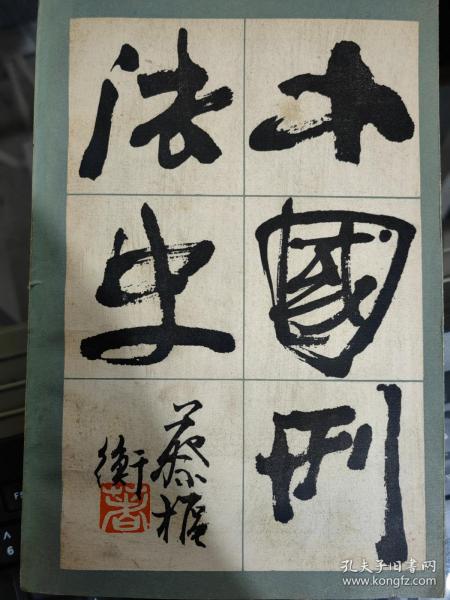 中國刑
法史
蔡枢
衡
著
孔夫子旧书网
www.kongfz.com